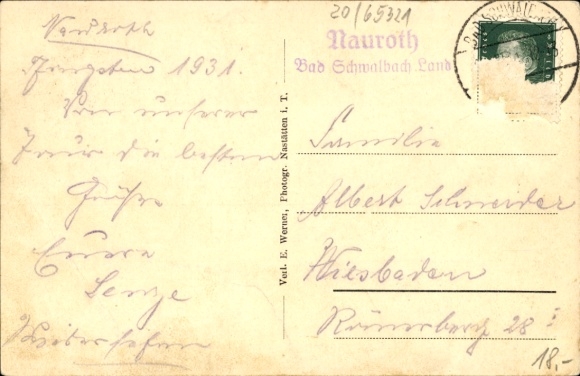 Nauroth
Pfingsten 1931.
Von unserer
Tour die besten
Grüße
Euere
Lenze
Wiedersehen
20/65321
Nauroth
Bad Schwalbach Land
Verl. E. Werner, Photogr. Nastätten i. T.
Familie
Albert Schneider
Wiesbaden
Römerberg 28 I
18,-